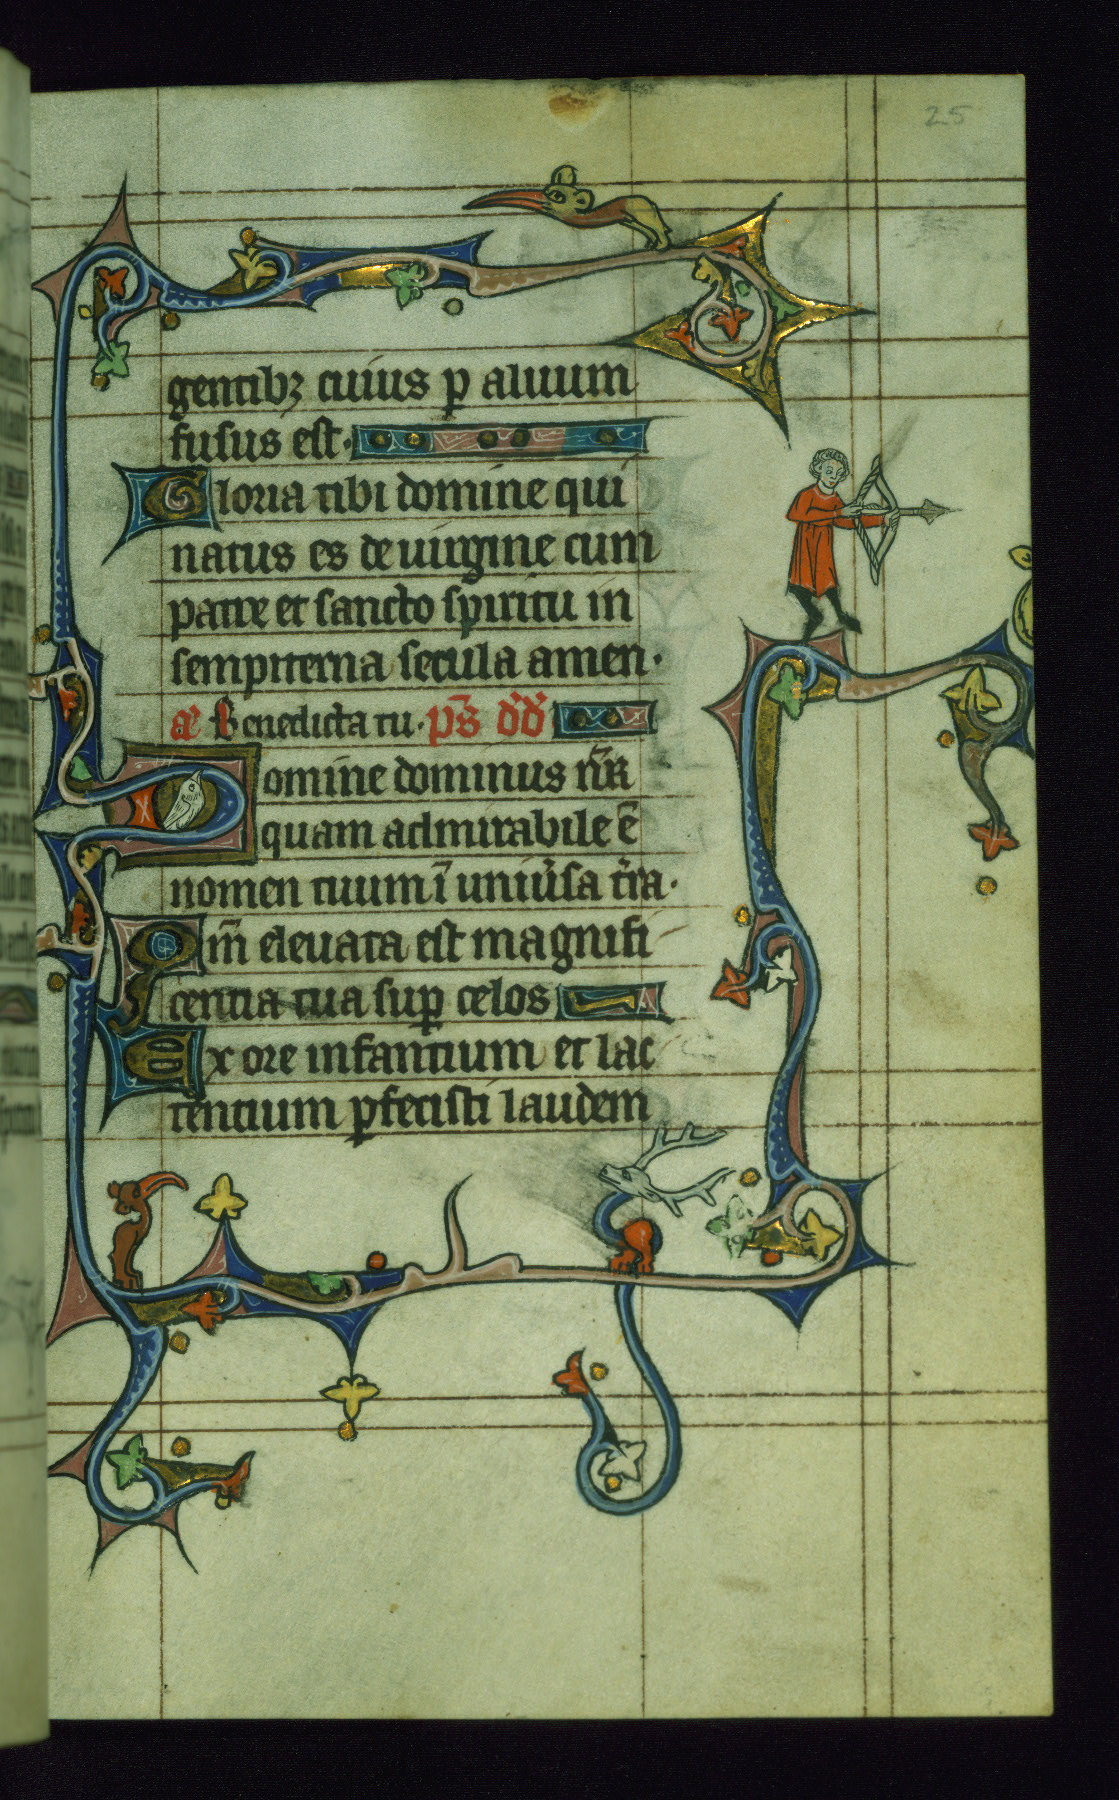 25
gentibꝫ cuius ꝑ aluum
fusus est·
Gloria tibi domine qui
natus es de uirgine cum
patre et sancto spiritu in
sempiterna secula amen·
añ Benedicta tu· pꝰs dd̄
Domine dominus nr̄
quam admirabile ē
nomen tuum ī uniūsa t̄ra·
Qm̄ eleuata est magnifi
centia tua suꝑ celos
Ex ore infantium et lac
tentium ꝑfecisti laudem